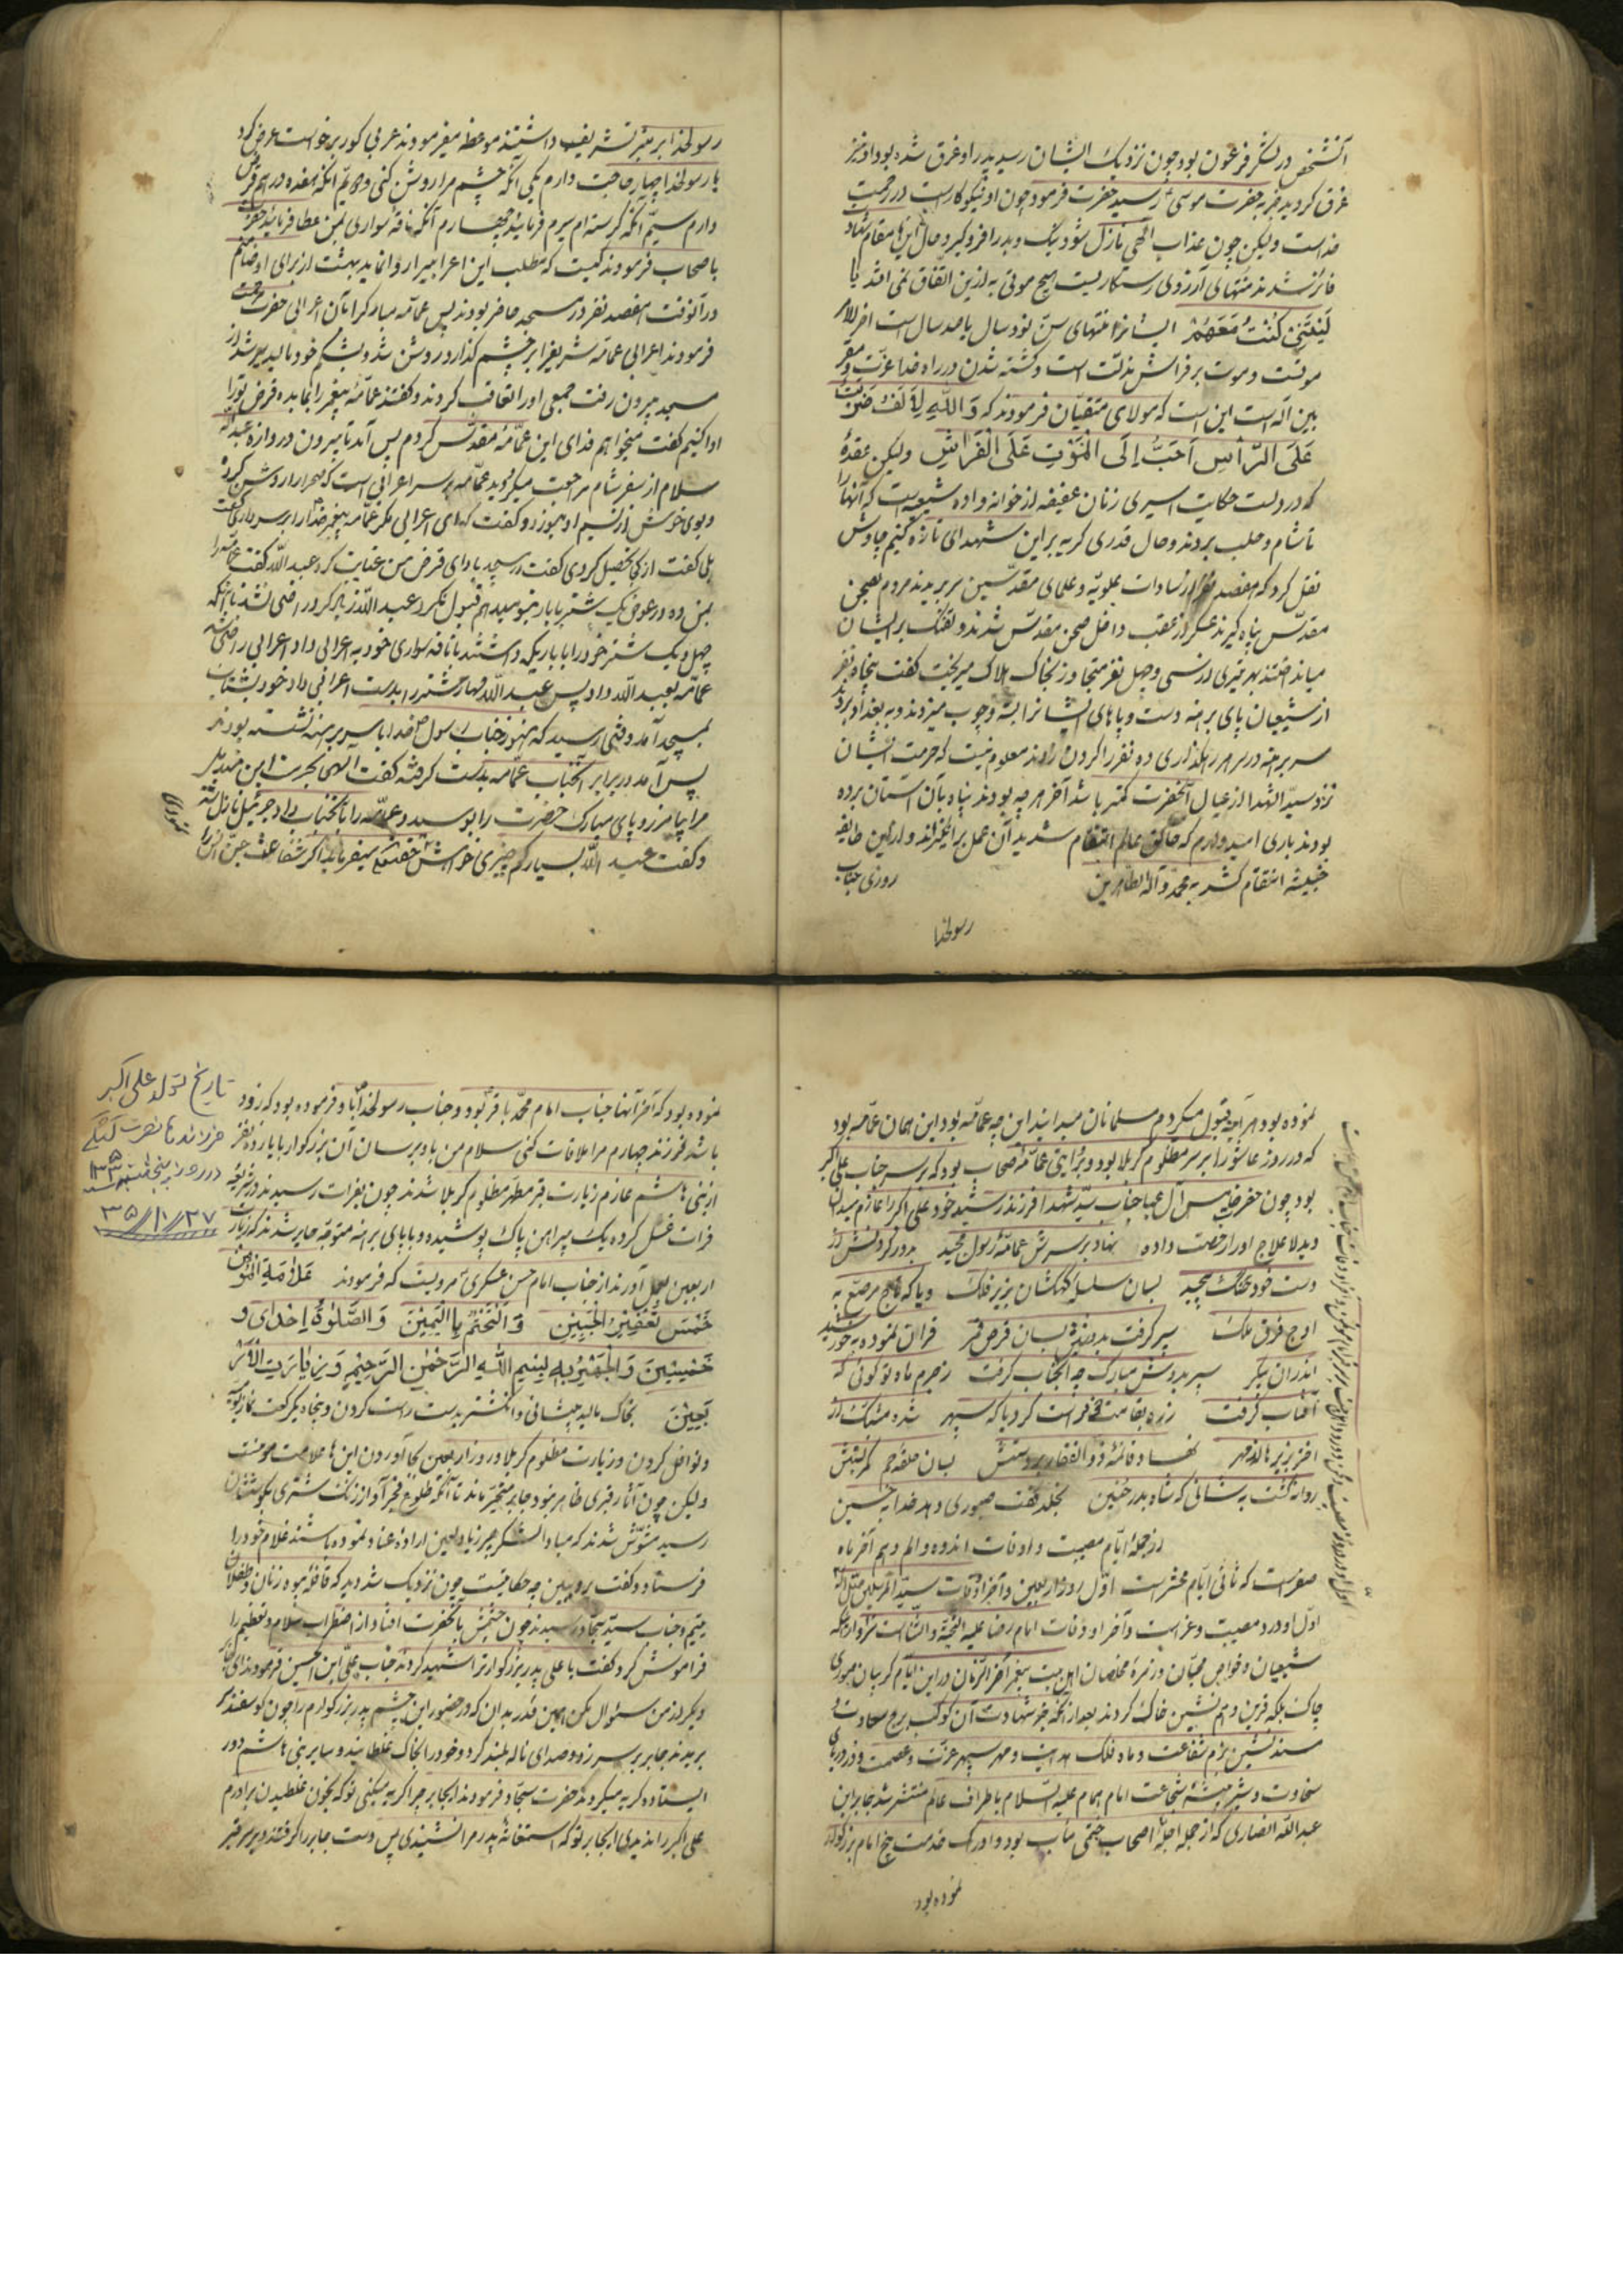 آنشخص در لشکر فرعون بود چون نزدیک ایشان رسید پدر او غرق شده بود او نیز
غرق گردید خبر به حضرت موسی رسید حضرت فرمود چون او نیکوکار است در رحمت
خداست ولیکن چون عذاب الهی نازل شود نیک و بد را فرو گیرد و حال این‌ها مقام شهادت
فائز شدند منتهای آرزوی رستگاریست هیچ موتی به ازین اتفاق نمی افتد یا
لَیتَنی کُنتُ مَعَهُم ایشانرا منتهای سن نود سال یا صد سال است اخر الامر
موتست و موت بر فراش مذلت است و کشته شدن در راه خدا عزت و مقر
بین اله است این است که مولای متقیان فرمودند که وَاللهِ لَأَلفُ ضَربَةٍ
عَلَی الرَّأسِ اَحَبُّ اِلَی المَوتِ عَلَی الفَراشِ ولیکن عقدهٔ
که در دلست حکایت اسیری زنان عفیفه از خوانواده شیعیست که آنها را
تا شام و حلب بردند و حال قدری گریه بر این شهدای تازه کنیم چاوش
نقل کرد که هفصد نفر از سادات علویه و علمای مقدسین سر بریدند مردم بصحن
مقدس پناه گیرند عسکر از عقب داخل صحن مقدس شدند و تفنگ بر ایشان
میانداختند بهر تیری دو سی و چهل نفر میتجاوز بخاک هلاک میریخت گفت پنجاه نفر
از شیعیان پای برهنه دست و پاهای ایشانرا بسته و چوب میزدند و به بغداد برده
سر برهنه در سر هر رهگذاری ده نفر را گردن زدند معلوم نیست که حرمت ایشان
نزد سید الشهدا از عیال آنحضرت کمتر باشد آخر هر چه بودند پناه بآن آستان برده
بودند باری امیدوارم که خالق عالم انتقام شدید آن عمل بر انگیزاند و از این طایفه
خبیثه انتقام کشد به محمد و آله الطاهرین روزی جناب
رسولخدا
رسولخدا بر منبر تشریف داشتند موعظه میفرمودند عربی کور برخواست عرض کرد
یا رسولخدا چهار حاجت دارم یکی آنکه چشم مرا روشن کنی دویم آنکه هفده درهم قرض
دارم سیم آنکه گرسنه‌ام سیرم فرمائید چهارم آنکه ناقه سواری بمن عطا فرمائید حضرت
باصحاب فرمودند کیست که مطلب این اعرابیرا روا نماید بهشت از برای او ضامنم
در آنوقت هفصد نفر در مسجد حاضر بودند پس عمامه مبارکرا بآن اعرابی حضرت مرحمت
فرمودند اعرابی عمامه شریفرا بر چشم گذارد روشن شد و بشکم خود مالید سیر شد از
مسجد بیرون رفت جمعی او را تعاقب کردند و گفتند عمامهٔ پیغمبر را بما بده قرض تو را
ادا کنیم گفت میخواهم فدای این عمامهٔ مقدس گردم پس آمد تا بیرون دروازه عبدالله
سلام از سفر شام مراجعت میکرد دید عمامه بر سر اعرابی است که صحرا را روشن کرده
و بوی خوش از نسیم او میوزد و گفت که ای اعرابی مگر عمامه پیغمبر خدا را بر سر داری گفت
بلی گفت از کجا تحصیل کردی گفت در مسجد بادای قرض من عنایت کرد عبدالله گفت عمامه را
بمن ده در عوض یک شتر با بار بتو میدهم قبول نکرد عبدالله زیاد کرد راضی نشد تا آنکه
چهل و یک شتر خود را با باریکه داشتند با ناقه سواری خود به اعرابی داد اعرابی راضی شد
عمامه بعبدالله داد پس عبدالله مهار شتر را بدست اعرابی داد خود بشتاب
بمسجد آمد وقتی رسید که هنوز جناب رسول خدا با سر برهنه نشسته بودند
پس آمد در برابر آنجناب عمامه بدست گرفته گفت الهی بحرمت این مندیل
مرا بیامرز و پای مبارک حضرت را بوسید و عمامه را بآنجناب داد جبرئیل نازل شد
و گفت عبدالله بسیار کم چیزی خواهش حقتعالی میفرماید اگر شفاعت جن و انس را
نموده بود هرآینه قبول میکردم مسلمانان میدانید این چه عمامه بود این همان عمامه بود
که در روز عاشورا بر سر مظلوم کربلا بود و بروایتی عمامهٔ اصحاب بود که بر سر جناب علی اکبر
بود چون حضرت خامس آل عبا جناب سید شهدا فرزند رشید خود علی اکبر را عازم میدان
دید لاعلاج او را رخصت داده نهاد بر سرش عمامهٔ رسول مجید بدور گردنش از
دست خود محنک پیچید بسان سلسلهٔ کهکشان بزیر فلک و یا که تاج مرصع به
اوج فرق ملک سپر گرفت بدوش بسان قرص قمر قران نموده به خورشید
اندران پیکر سپر بدوش مبارک چه آنجناب گرفت ز جرم ماه تو گوئی که
آفتاب گرفت زره بقامت خود راست کرد یا که سپهر شده مشبک از
اختر بزیر هاله مهر نهاد قائمهٔ ذوالفقار بر دستش بسان حلقهٔ جم کمر بستش
روانه گشت به شانی که شاه بدر حنین بخلد گفت صبوری دهد خدا به حسین
از جملهٔ ایام مصیبت و اوقات اندوه و الم دهم آخر ماه
صفر است که ثانی ایام محشر است اول روز اربعین و آخر او وفات سید المرسلین مثل آنکه
اول او درد و مصیبت و عزاست و آخر او وفات امام رضا علیه التحیة والثناست سزاوار آنکه
شیعیان و خواص محبان و زمرهٔ مخلصان اهل بیت پیغمبر آخر الزمان در این ایام گریبان صبوری
چاک بلکه قرین و هم نشین خاک گردند بعد از آنکه خبر شهادت آن کوکب برج سعادت و
مسند نشین بزم شفاعت و ماه فلک هدایت و مهر سپهر عزت و عصمت و در دریای
سخاوت و شیر بیشهٔ شجاعت امام همام علیه السلام باطراف عالم منتشر شد جابر ابن
عبدالله انصاری که از جمله اجلهٔ اصحاب ختمی مآب بود و ادراک خدمت پنج امام بزرگوار
نموده بود
نموده بود که آخر آنها جناب امام محمد باقر بود و جناب رسولخدا باو فرموده بود که زود
باشد فرزند چهارم مرا ملاقات کنی سلام من باو برسان آن بزرگوار با یازده نفر
از بنی هاشم عازم زیارت قبر مطهر مظلوم کربلا شدند چون بفرات رسیدند در شریعهٔ
فرات غسل کرده یک پیراهن پاک پوشیده و با پای برهنه متوجه حایر شدند که زیارت
اربعین بعمل آورند از جناب امام حسن عسکری مرویست که فرمودند عَلامَةِ المُؤمِنِ
خَمسَ تَعفیرُ الجَبینِ وَ التَختُمُ بِالیَمینِ وَ الصَّلوةُ اِحدَی وَ
خَمسینَ وَ الجَهرُ بِه بِسمِ اللهِ الرَّحمنِ الرَّحیمِ وَ زِیارَتِ الاَر
بَعینَ بخاک مالید پیشانی و انگشتر بدست راست کردن و پنجاه یکرکعت نماز یومیه
و نوافل کردن و زیارت مظلوم کربلا در روز اربعین بجا آوردن این‌ها علامت مؤمنست
ولیکن چون آثار قبری ظاهر نبود جابر متحیر ماند تا آنکه طلوع فجر آواز زنگ شتری بگوششان
رسید مشوش شدند که مبادا لشکر عبیر زیاد لعین اراده عناد نموده باشند غلام خود را
فرستاد و گفت برو ببین چه حکایتست چون نزدیک شد دید که قافلهٔ بیوه زنان و طفلان
یتیم و جناب سید سجاد رسیدند چون چشمش بآنحضرت افتاد از اضطراب سلام و تعظیم را
فراموش کرد گفت یا علی پدر بزرگوار ترا شهید کردند جناب علی ابن الحسین فرمودند ای جابر
دیگر از من سئوال مکن همین قدر بدان که در حضور این چشم پدر بزرگوارم را چون گوسفند سر
بریدند جابر بر سر زد و صدای ناله بلند کرد و خود را بخاک غلطانید و سایر بنی هاشم دور
ایستاده گریه میکردند حضرت سجاد فرمودند ایجابر چرا گریه میکنی تو که بخون غلطیدن برادرم
علی اکبر را ندیدی ایجابر تو که استغاثهٔ پدر مرا نشنیدی پس دست جابر را گرفتند و بر سر قبر
تاریخ تولد علی اکبر
در روز پنجشنبه
۳۵/۱۰/۲۷